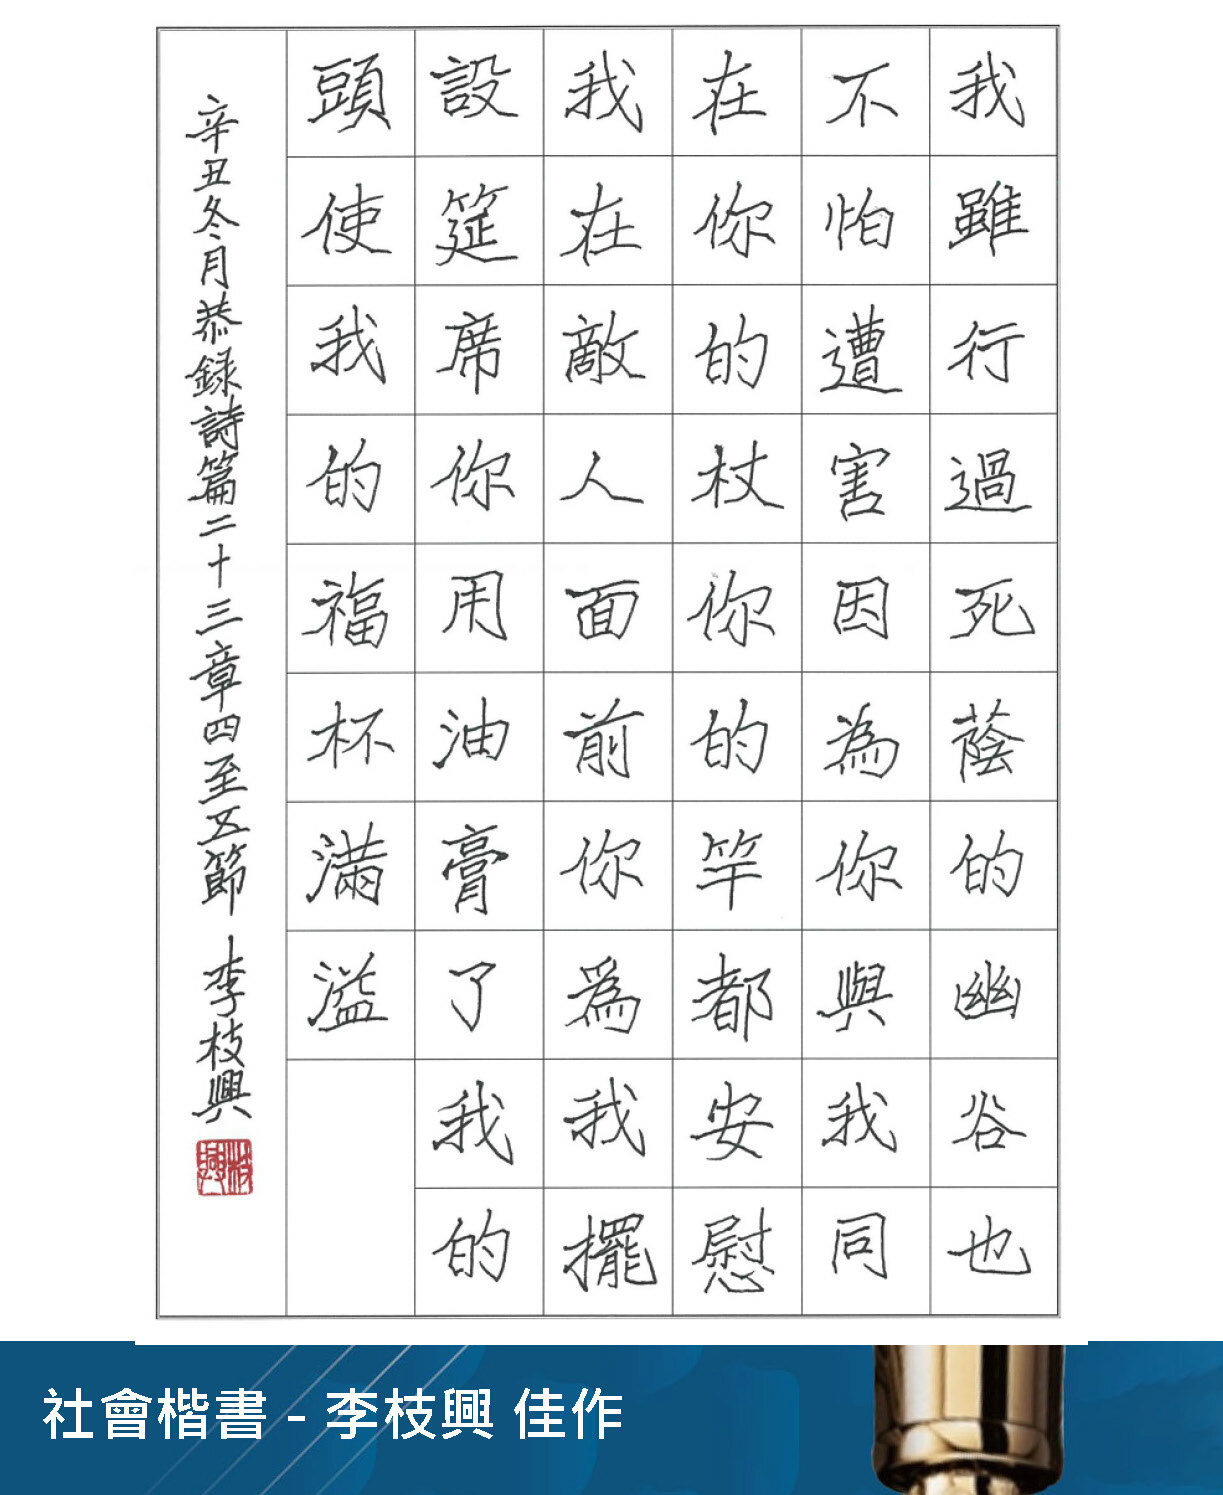 我雖行過死蔭的幽谷也
不怕遭害因為你與我同
在你的杖你的竿都安慰
我在敵人面前你為我擺
設筵席你用油膏了我的
頭使我的福杯滿溢
辛丑冬月恭録詩篇二十三章四至五節 李枝興
枝興
社會楷書 - 李枝興 佳作